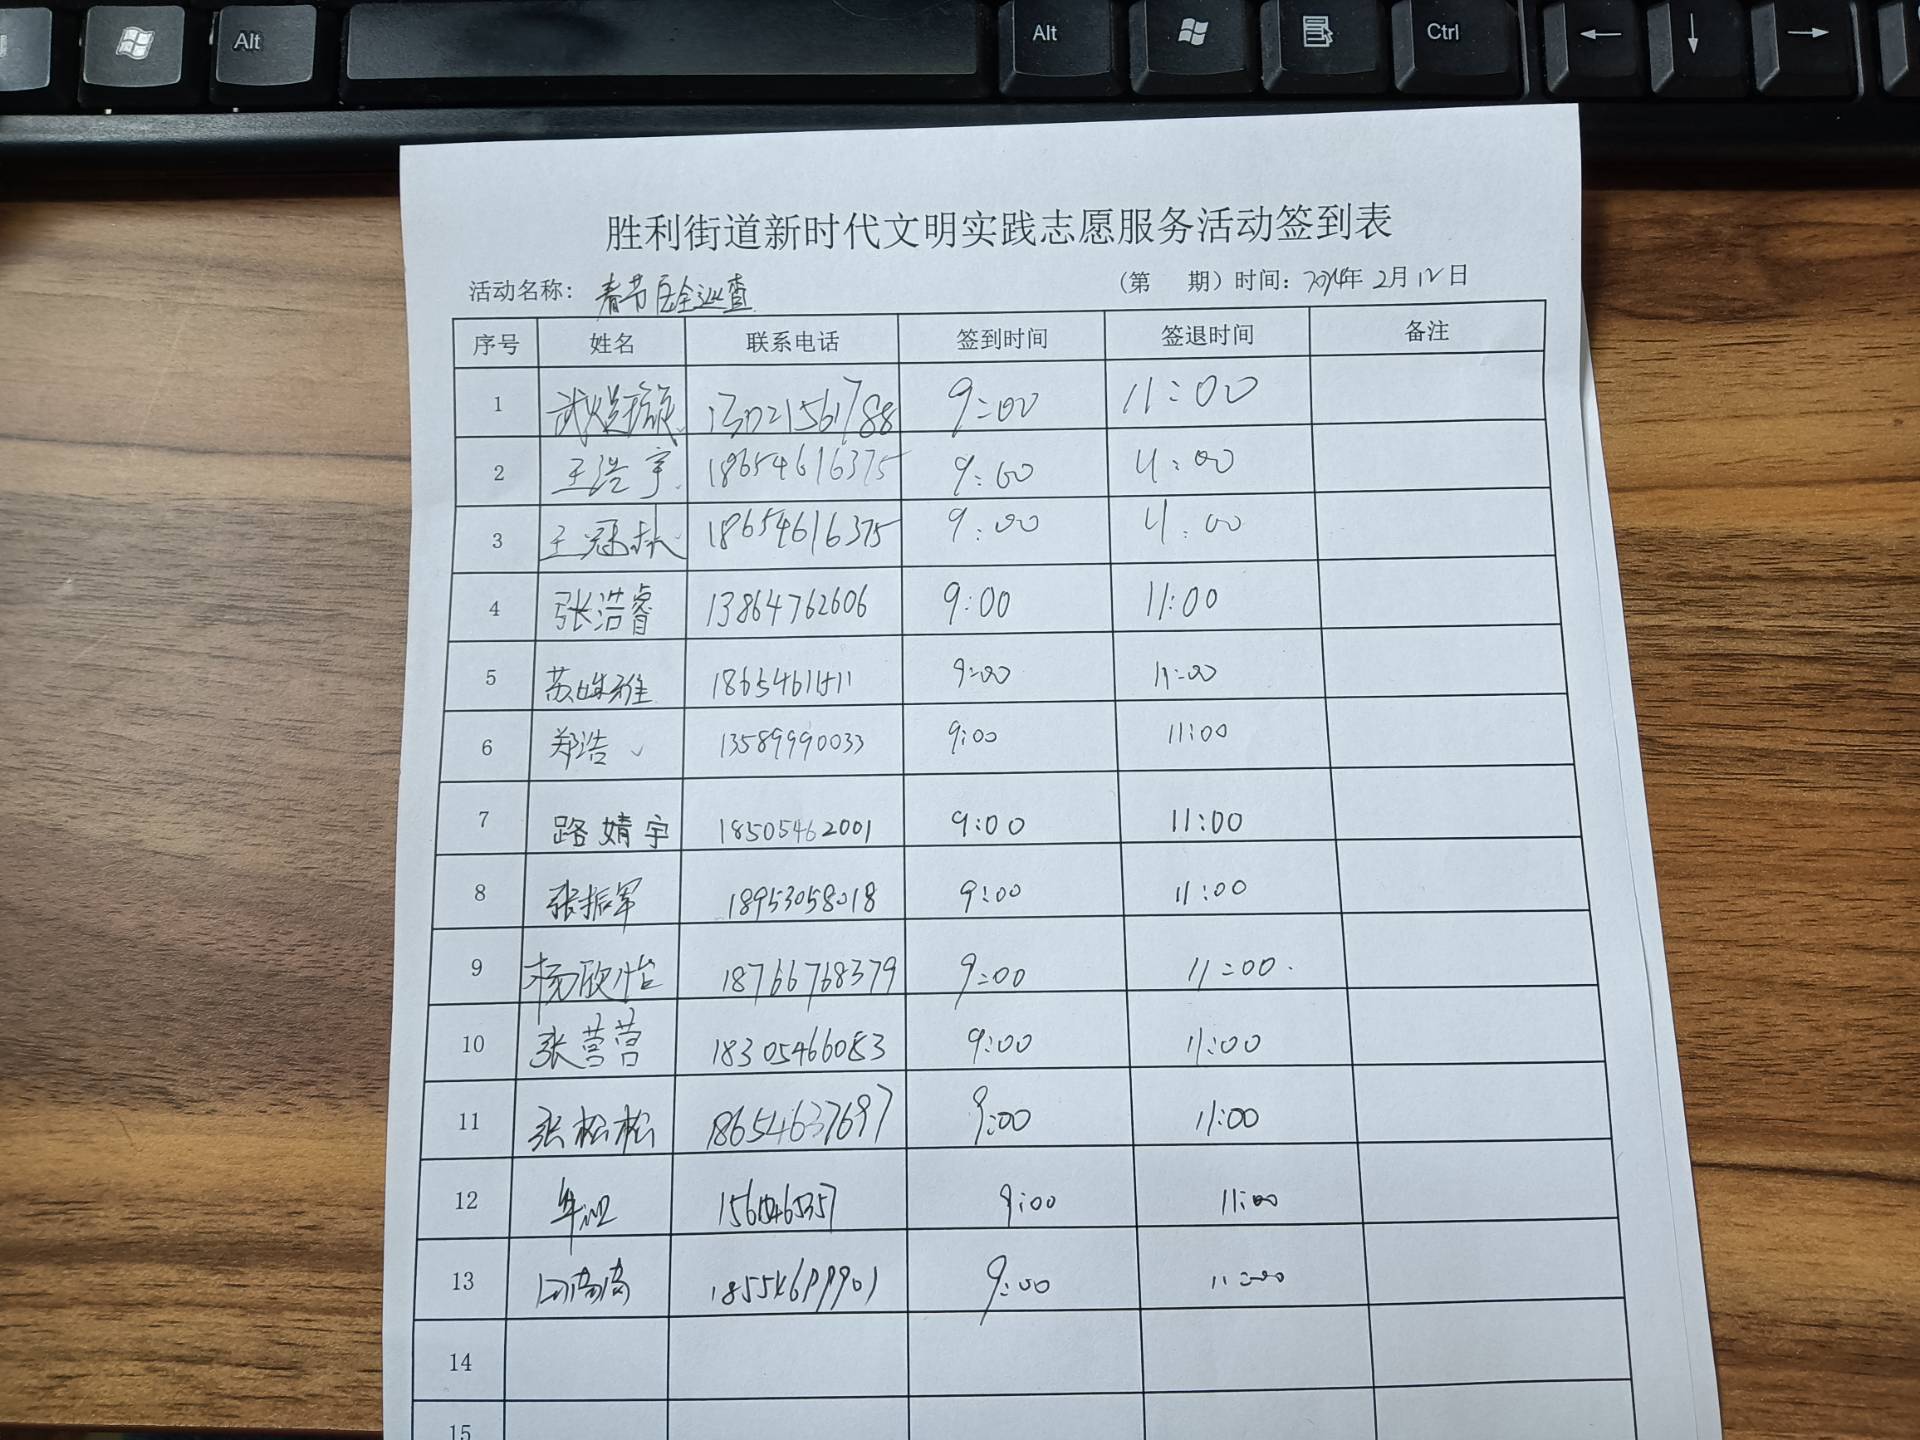 Alt
Alt
Ctrl
胜利街道新时代文明实践志愿服务活动签到表
活动名称: 春节安全巡查 (第 期) 时间: 2024年 2月12日
序号 姓名 联系电话 签到时间 签退时间 备注
1 13021561788 9:00 11:00
2 王浩宇 18654616375 9:00 11:00
3 王冠林 18654616375 9:00 11:00
4 张浩睿 13864762606 9:00 11:00
5 9:00 11:00
6 郑浩 13589990033 9:00 11:00
7 路婧宇 18505462001 9:00 11:00
8 张振军 18953058018 9:00 11:00
9 杨欣怡 18766768379 9:00 11:00
10 张营营 18305466083 9:00 11:00
11 张松松 18654637697 9:00 11:00
12 9:00 11:00
13 9:00 11:00
14
15